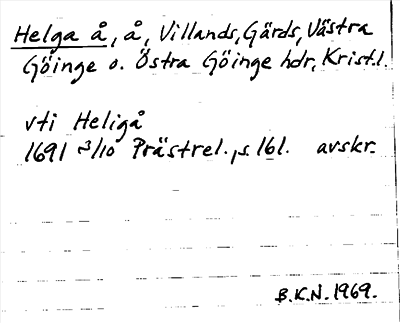 Helga å, å, Villands, Gärds, Västra
Göinge o. Östra Göinge hdr, Krist.l.
vti Heligå
1691 3/10 Prästrel., s. 161. avskr.
B.K.N. 1969.